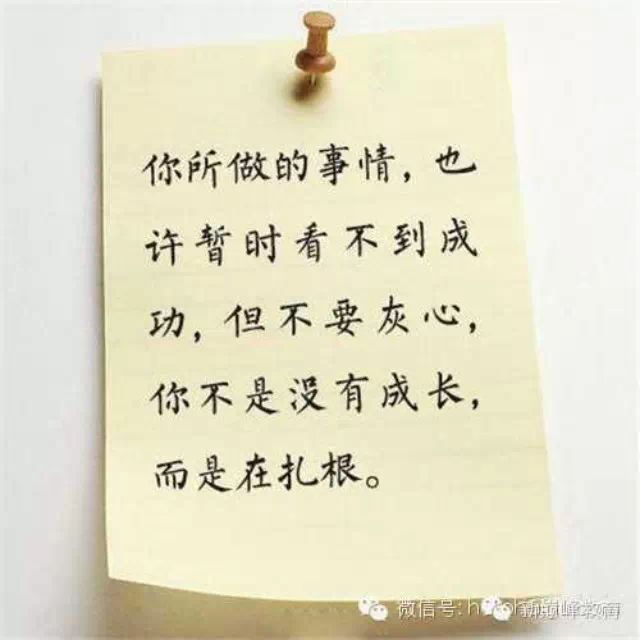 你所做的事情，也
许暂时看不到成
功，但不要灰心，
你不是没有成长，
而是在扎根。
微信号:
新巅峰教育